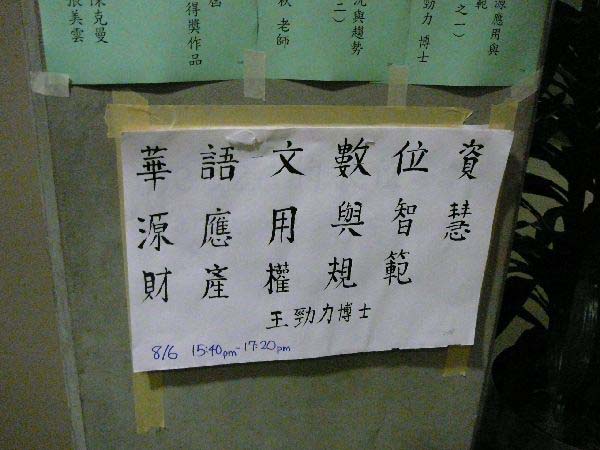 源應用與
範
之一）
勁力 博士
況與趨勢
二）
秋 老師
得獎作品
克曼
張美雲
華語文數位資
源應用與智慧
財產權規範
王勁力博士
8/6 15:40pm-17:20pm